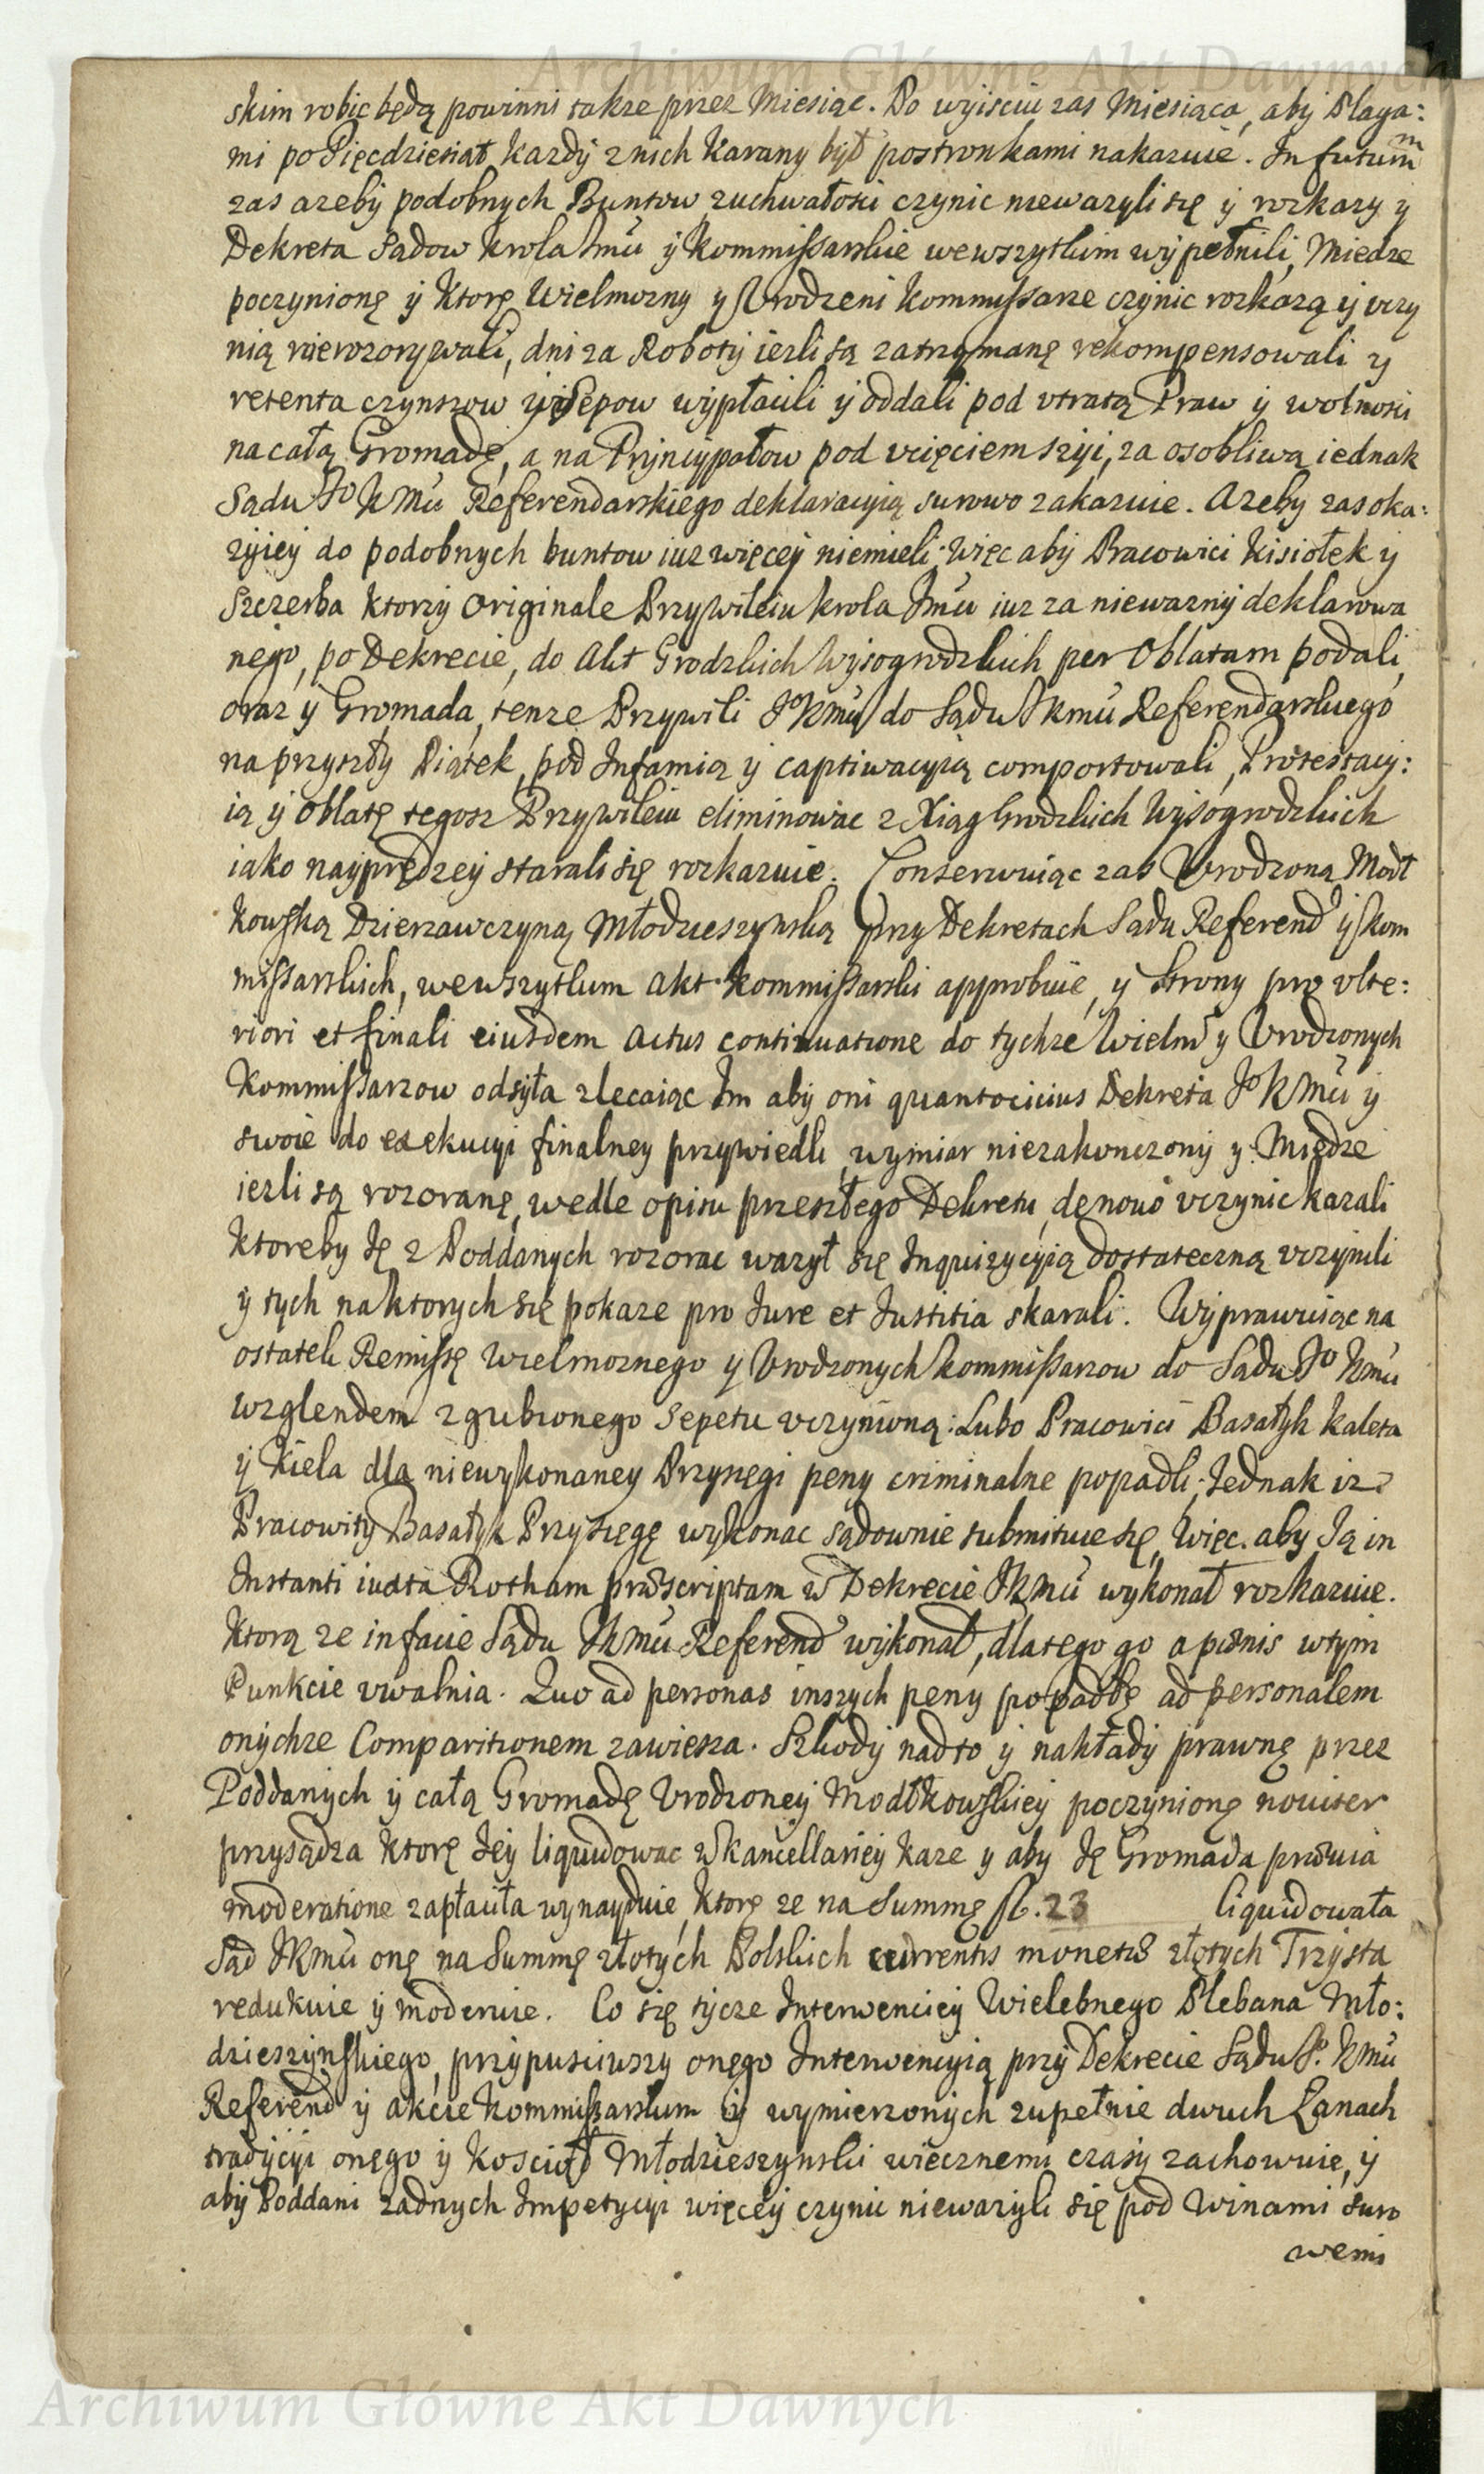 Archiwum Główne Akt Dawnych
skim robic będą powinni takze przez Miesiąc. Po wyisciu zas Miesiąca, aby Plaga:
mi po Pięcdziesiąt, kazdy z nich karany był postronkami nakazuie. In futurum
zas azeby podobnych Buntow zuchwałosci czynic niewazyli się y rozkazy y
Dekreta Sądow Krola Jmu y Kommissarskie wewszytkim wypełnili, Miedze
poczynionę y ktorę Wielmozny y Urodzeni Kommissarze czynic rozkazą y uczy
nią nierozorywali, dni za Roboty iezli są zatrzymanę rekompensowali y
retenta czynszow y Sepow wypłacili y oddali pod utratą Praw y wolnosci
na całą Gromadę, a na Pryncypałow pod ucięciem szyi, za osobliwą iednak
Sądu Jo Kmu Referendarskiego deklaracyią surowo zakazuie. Azeby zas oka:
zyiey do podobnych buntow iuz więcey niemieli; Więc aby Pracowici Kisiołek y
Szczerba ktorzy Originale Przywileiu Krola Jmu iuz za niewazny deklarowa
nego, po Dekrecie, do Akt Grodzkich Wysogrodzkich per Oblatam podali,
oraz y Gromada, tenze Przywili Jo Kmu do Sądu Jkmu Referendarskiego
na przyszły Piątek, pod Infamią y captiwacyią comportowali, Protestacy:
ią y Oblatę tegosz Przywileiu eliminowac z Xiąg Grodzkich Wysogrodzkich
iako nayprędzey starali się rozkazuie. Conserwuiąc zas Urodzoną Modł
kowską Dzierzawczyną Młodzieszynską przy Dekretach Sądu Referend y Kom
missarskich, wewszytkim Akt Kommissarski approbuie, y Strony pro ulte:
riori et finali eiusdem Actus continuatione do tychze Wielm y Urodzonych
Kommissarzow odsyła zlecaiąc Im aby oni quantocicius Dekreta Jo Kmu y
swoie do exekucyi finalney przywiedli, wymiar niezakonczony y Miedze
iezli są rozoranę, wedle opisu przeszłego Dekretu, denouo uczynic kazali
ktoreby Ię z Poddanych rozorac wazył się Inquizycyią dostateczną uczynili
y tych naktorych się pokaze pro Iure et Iustitia skarali. Wyprawuiąc na
ostatek Remissę Wielmoznego y Urodzonych Kommissarzow do Sądu Jo Kmu
wzglendem zgubionego Sepetu uczynioną: Lubo Pracowici Basałyk Kaleta
y Kiela dla niewykonaney Przysęgi peny criminalne popadli; Iednak iz
Pracowity Basałyk Przysięgę wykonac sądownie submituie się, Więc aby Ią in
Instanti iuxta Rotham præscriptam w Dekrecie Jkmu wykonał rozkazuie.
Ktorą ze infacie Sądu Jkmu Referend wykonał, dlatego go a pænis wtym
Punkcie uwalnia. Quo ad personas inszych peny popadłę ad personalem
onychze Comparitionem zawiesza. Szkody nadto y nakłady prawnę przez
Poddanych y całą Gromadę Urodzoney Modłkowskiey poczynionę nouiter
przysądza ktorę Iey liquidowac w Kancellariey kaze y aby Ię Gromada præuia
moderatione zapłaciła wynayduie, ktorę ze na Summę fl. 23 liquidowała
Sąd Jkmu onę na Summę złotych Polskich currentis monetæ złotych Trzysta
redukuie y moderuie. Co się tycze Interwenciey Wielebnego Plebana Mło:
dzieszynskiego, przypusciwszy onego Interwencyią przy Dekrecie Sądu Jo. Kmu
Referend y akcie Kommissarskim y wymierzonych zupełnie dwuch Łanach
tradycyi onego y Koscioł Młodzieszynski wiecznemi czasy zachowuie, y
aby Poddani zadnych Impetycyi więcey czynic niewazyli się pod Winami suro
wemi
Archiwum Główne Akt Dawnych